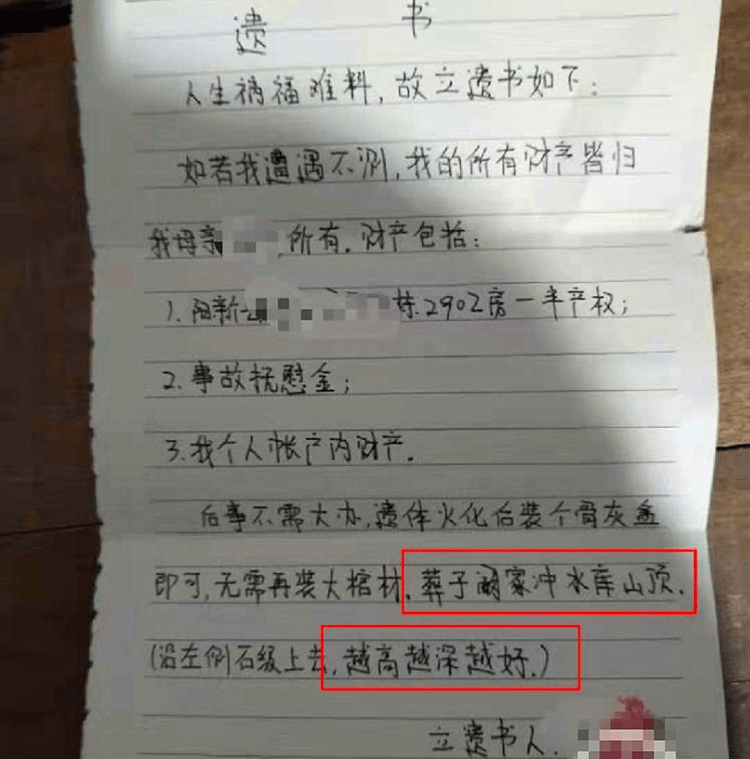 遗 书
人生祸福难料，故立遗书如下：
如若我遭遇不测，我的所有财产皆归
我母亲 所有。财产包括：
1. 阳新 栋2902房一半产权；
2. 事故抚慰金；
3. 我个人帐户内财产。
后事不需大办，遗体火化后装个骨灰盒
即可，无需再装大棺材。葬于阚家冲水库山顶。
（沿左侧石级上去，越高越深越好。）
立遗书人.